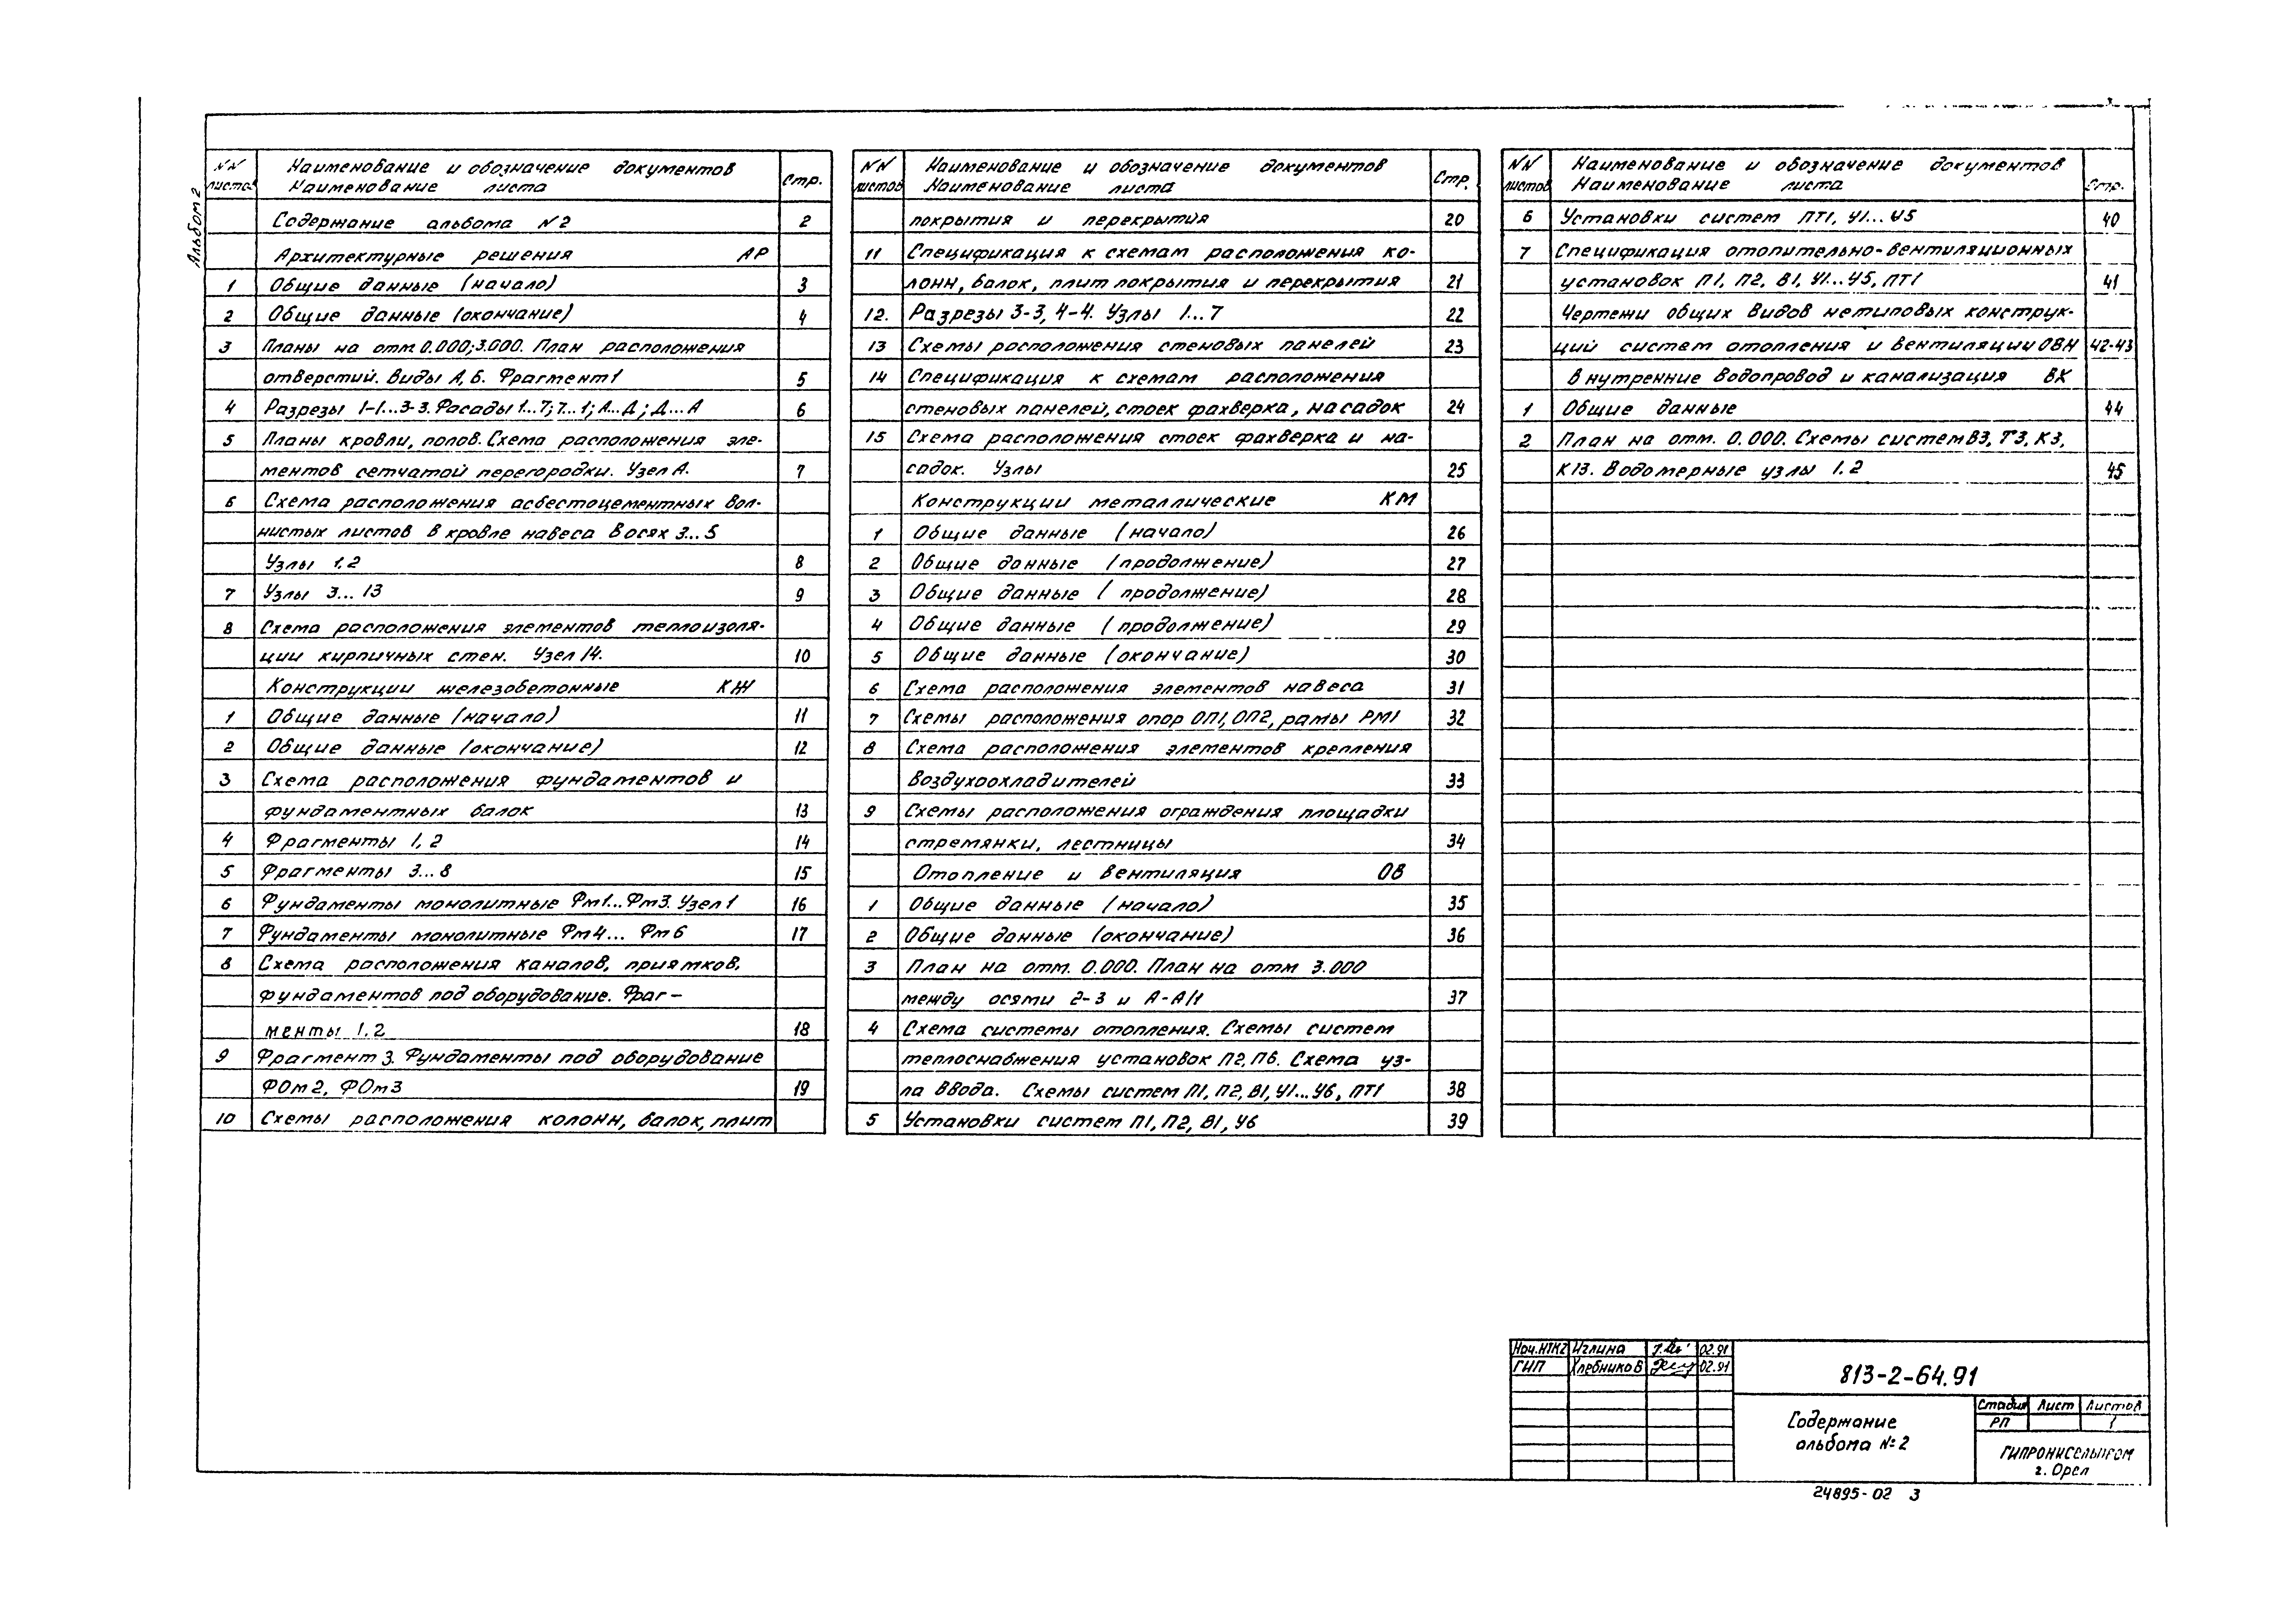 Альбом 2
NN листов Наименование и обозначение документов Наименование листа Стр.
Содержание альбома N2 2
Архитектурные решения АР
1 Общие данные (начало) 3
2 Общие данные (окончание) 4
3 Планы на отм. 0.000; 3.000. План расположения
отверстий. Виды А, Б. Фрагмент 1 5
4 Разрезы 1-1...3-3. Фасады 1...7; 7...1; А...Д; Д...А 6
5 Планы кровли, полов. Схема расположения эле-
ментов сетчатой перегородки. Узел А. 7
6 Схема расположения асбестоцементных вол-
нистых листов в кровле навеса в осях 3...5
Узлы 1, 2 8
7 Узлы 3... 13 9
8 Схема расположения элементов теплоизоля-
ции кирпичных стен. Узел 14. 10
Конструкции железобетонные КЖ
1 Общие данные (начало) 11
2 Общие данные (окончание) 12
3 Схема расположения фундаментов и
фундаментных балок 13
4 Фрагменты 1, 2 14
5 Фрагменты 3...8 15
6 Фундаменты монолитные Фм1...Фм3. Узел 1 16
7 Фундаменты монолитные Фм4... Фм6 17
8 Схема расположения каналов, приямков,
фундаментов под оборудование. Фраг-
менты 1, 2 18
9 Фрагмент 3. Фундаменты под оборудование
ФОм2, ФОм3 19
10 Схемы расположения колонн, балок, плит
NN листов Наименование и обозначение документов Наименование листа Стр.
покрытия и перекрытия 20
11 Спецификация к схемам расположения ко-
лонн, балок, плит покрытия и перекрытия 21
12. Разрезы 3-3, 4-4. Узлы 1...7 22
13 Схемы расположения стеновых панелей 23
14 Спецификация к схемам расположения
стеновых панелей, стоек фахверка, насадок 24
15 Схема расположения стоек фахверка и на-
садок. Узлы 25
Конструкции металлические КМ
1 Общие данные (начало) 26
2 Общие данные (продолжение) 27
3 Общие данные (продолжение) 28
4 Общие данные (продолжение) 29
5 Общие данные (окончание) 30
6 Схема расположения элементов навеса 31
7 Схемы расположения опор ОП1, ОП2, рамы РМ1 32
8 Схема расположения элементов крепления
воздухоохладителей 33
9 Схемы расположения ограждения площадки
стремянки, лестницы 34
Отопление и вентиляция ОВ
1 Общие данные (начало) 35
2 Общие данные (окончание) 36
3 План на отм. 0.000. План на отм 3.000
между осями 2-3 и А-А/1 37
4 Схема системы отопления. Схемы систем
теплоснабжения установок П2, П6. Схема уз-
ла ввода. Схемы систем П1, П2, В1, У1...У6, ПТ1 38
5 Установки систем П1, П2, В1, У6 39
NN листов Наименование и обозначение документов Наименование листа Стр.
6 Установки систем ПТ1, У1...У5 40
7 Спецификация отопительно-вентиляционных
установок П1, П2, В1, У1...У5, ПТ1 41
Чертежи общих видов нетиповых конструк-
ций систем отопления и вентиляции ОВН 42-43
Внутренние водопровод и канализация ВК
1 Общие данные 44
2 План на отм. 0.000. Схемы систем В3, Т3, К3,
К13. Водомерные узлы 1, 2 45
Нач.НТК2 Иглина 02.91
ГИП Хлебников 02.91
813-2-64.91
Содержание
альбома №2
Стадия Лист Листов
РП 1
ГИПРОНИСЕЛЬПРОМ
г. Орел
24895-02 3